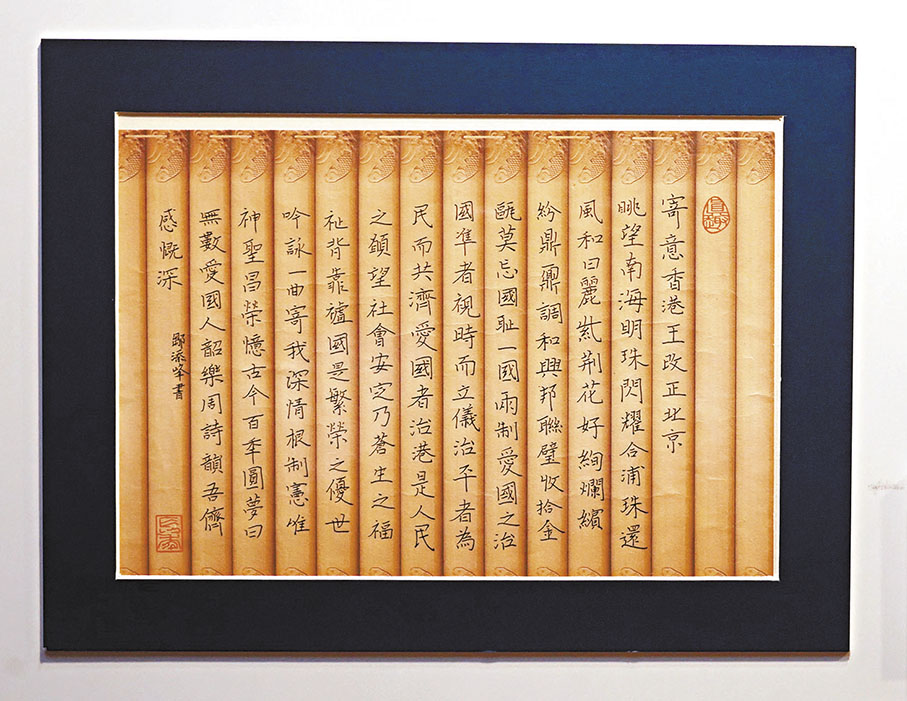 寄意香港王改正北京
眺望南海明珠閃耀合浦珠還
風和日麗紫荆花好絢爛繽
紛鼎鼐調和興邦聯璧收拾金
甌莫忘國耻一國兩制愛國之治
國準者視時而立儀治平者為
民而共濟愛國者治港是人民
之願望社會安定乃蒼生之福
祉背靠國是繁榮之優世
吟詠一曲寄我深情根制憲唯
神聖昌榮憶古今百年圓夢曰
無數愛國人韶樂周詩韻吾儕
感慨深
峰書